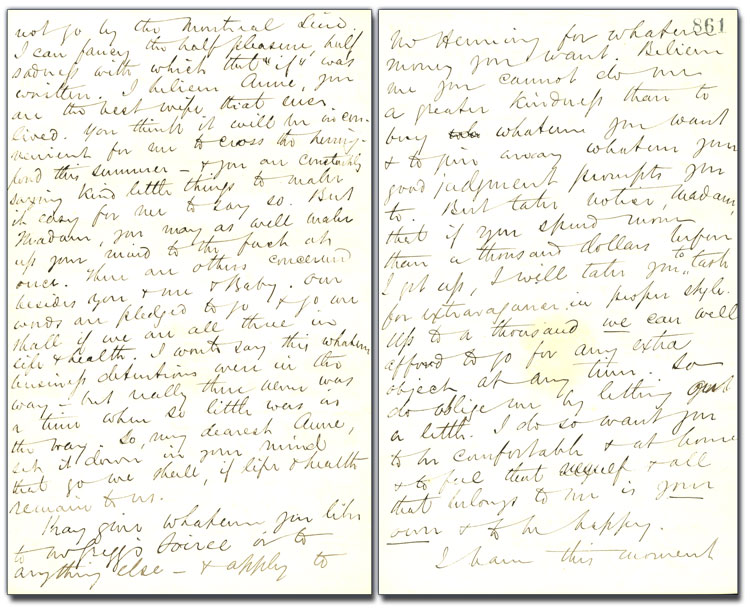 not go by the Montreal Line
I can fancy the half pleasure, half
sadness with which that "if" was
written. I believe Anne, you
are the best wife that ever
lived. You think it will be incon-
venient for me to cross the herring-
pond this summer — & you are constantly
saying kind little things to make
it easy for me to say so. But
Madam, you may as well make
up your mind to the fact at
once. There are others concerned
besides you & me & Baby. Our
words are pledged to go & go we
shall if we are all three in
life & health. I wont say this whatever
business detentions were in the
way — but really there never was
a time when so little was in
the way. So, my dearest Anne,
set it down in your mind
that go we shall, if life & health
remain to us.
Pray give whatever you like
to McGregg's Soiree or to
anything else — & apply to
861
Mr Henning for whatever
money you want. Believe
me you cannot do me
a greater kindness than to
buy whatever you want
& to give away whatever your
good judgment prompts you
to. But take notice, Madam,
that if you spend more
than a thousand dollars before
I get up, I will take you to task
for extravagance in proper style.
Up to a thousand we can well
afford to go for any extra
object at any time. So
do oblige me by letting out
a little. I do so want you
to be comfortable & at home
& to feel that myself & all
that belongs to me is your
own & to be happy.
I have this moment